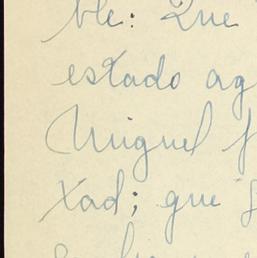 ble: Que
estado ag
Miguel f
xad; que